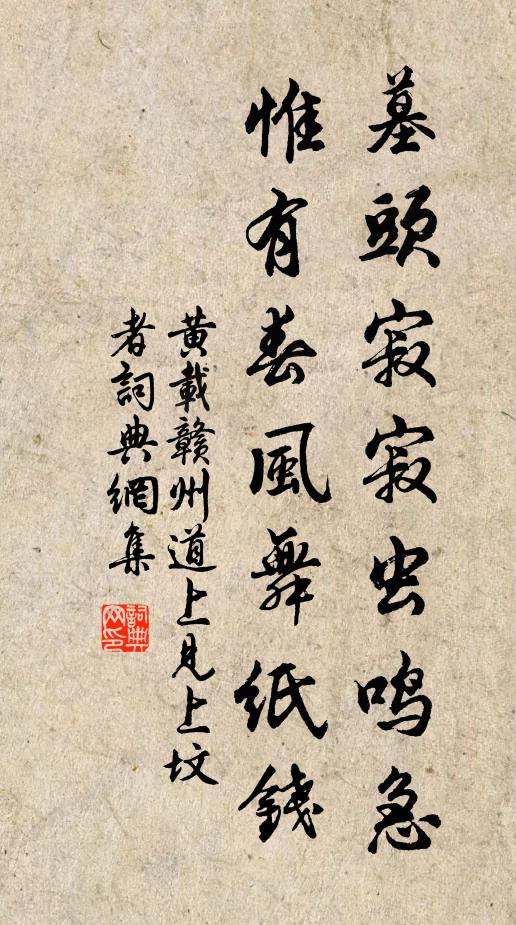 墓頭寂寂虫鳴急
惟有春風舞紙錢
黄載贛州道上見上墳
者詞典網集
詞典網印